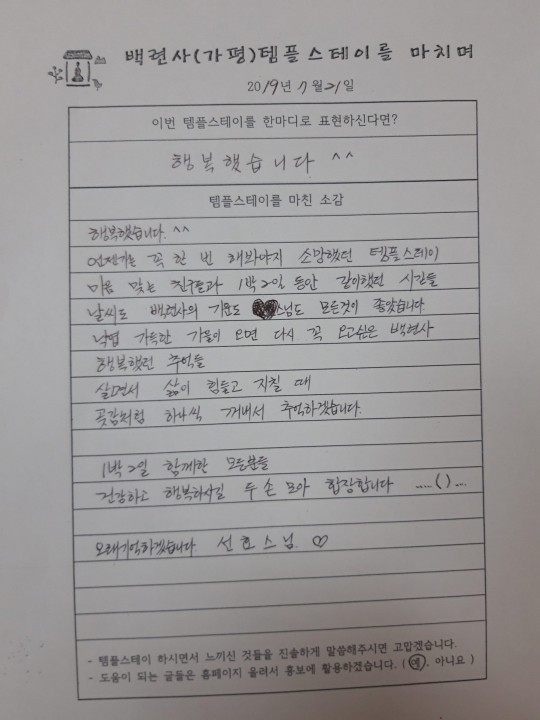 백련사(가평)템플스테이를 마치며
2019년 7월 21일
이번 템플스테이를 한마디로 표현하신다면?
행복했습니다 ^^
템플스테이를 마친 소감
행복했습니다. ^^
언젠가는 꼭 한 번 해봐야지 소망했던 템플스테이
마음 맞는 친구들과 1박2일 동안 같이했던 시간들
날씨도 백련사의 기운도 스님도 모든것이 좋았습니다.
낙엽 가득한 가을이 오면 다시 꼭 오고싶은 백련사
행복했던 추억들
살면서 삶이 힘들고 지칠 때
곶감처럼 하나씩 꺼내서 추억하겠습니다.
1박2일 함께한 모든분들
건강하고 행복하시길 두 손 모아 합장합니다 .....( )....
오래기억하겠습니다. 선효스님. ♡
- 템플스테이 하시면서 느끼신 것들을 진솔하게 말씀해주시면 고맙겠습니다.
- 도움이 되는 글들은 홈페이지 올려서 홍보에 활용하겠습니다. ( 예, 아니요 )